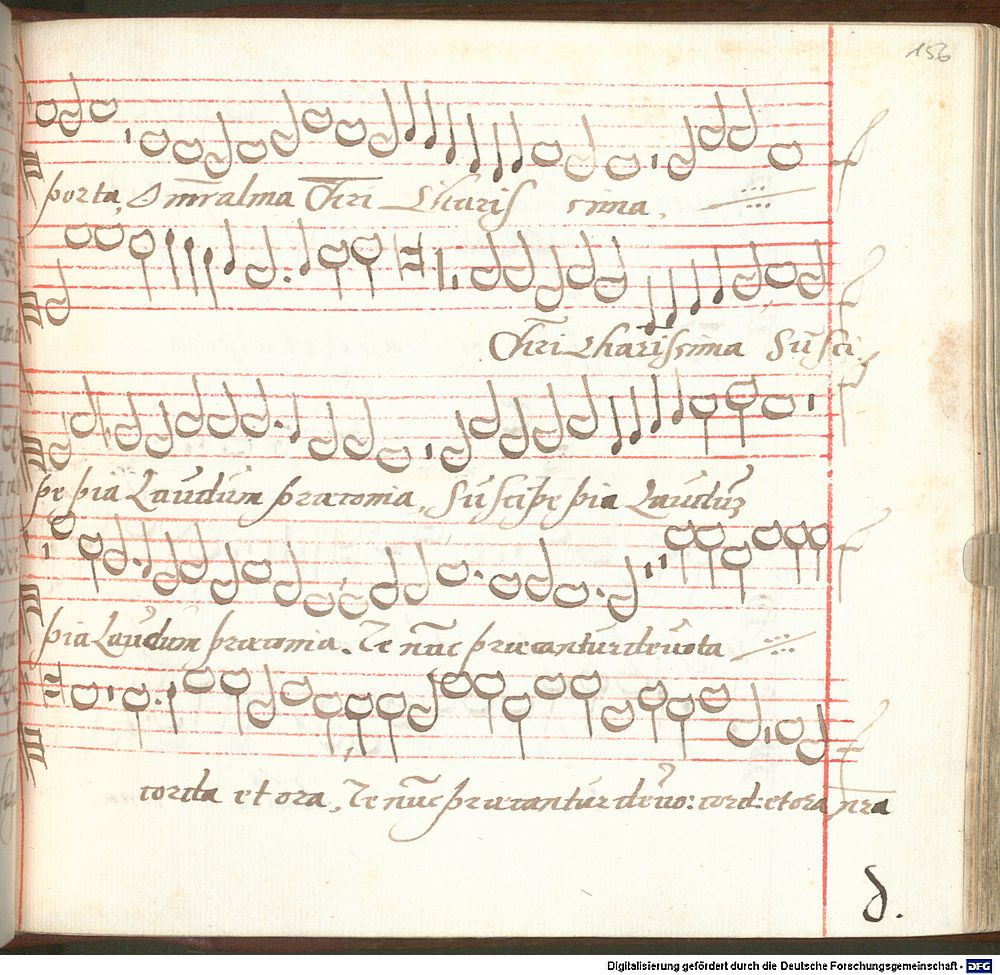 156
porta, O mr̃ alma Chri Charis sima,
Chri Charissima Sũsci
pe pia Laudum præconia, Suscipe pia Laudũ
pia Laudum præconia. Te nũc præcantur devota
corda et ora, Te nũc præcantur devo: cord: et ora nr̃a
d.
Digitalisierung gefördert durch die Deutsche Forschungsgemeinschaft - DFG